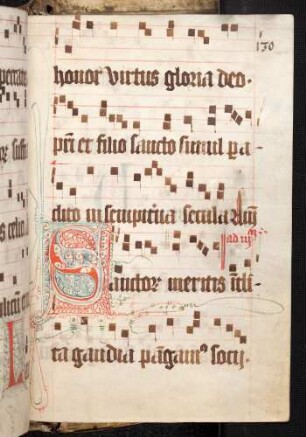 130
honor virtus gloria deo.
pr̄i et filio sancto simul pa-
clito in sempit̄na secula Am̄
ad vīs
Sanctor meritis īcli-
ta gaudia pāgamꝰ socij